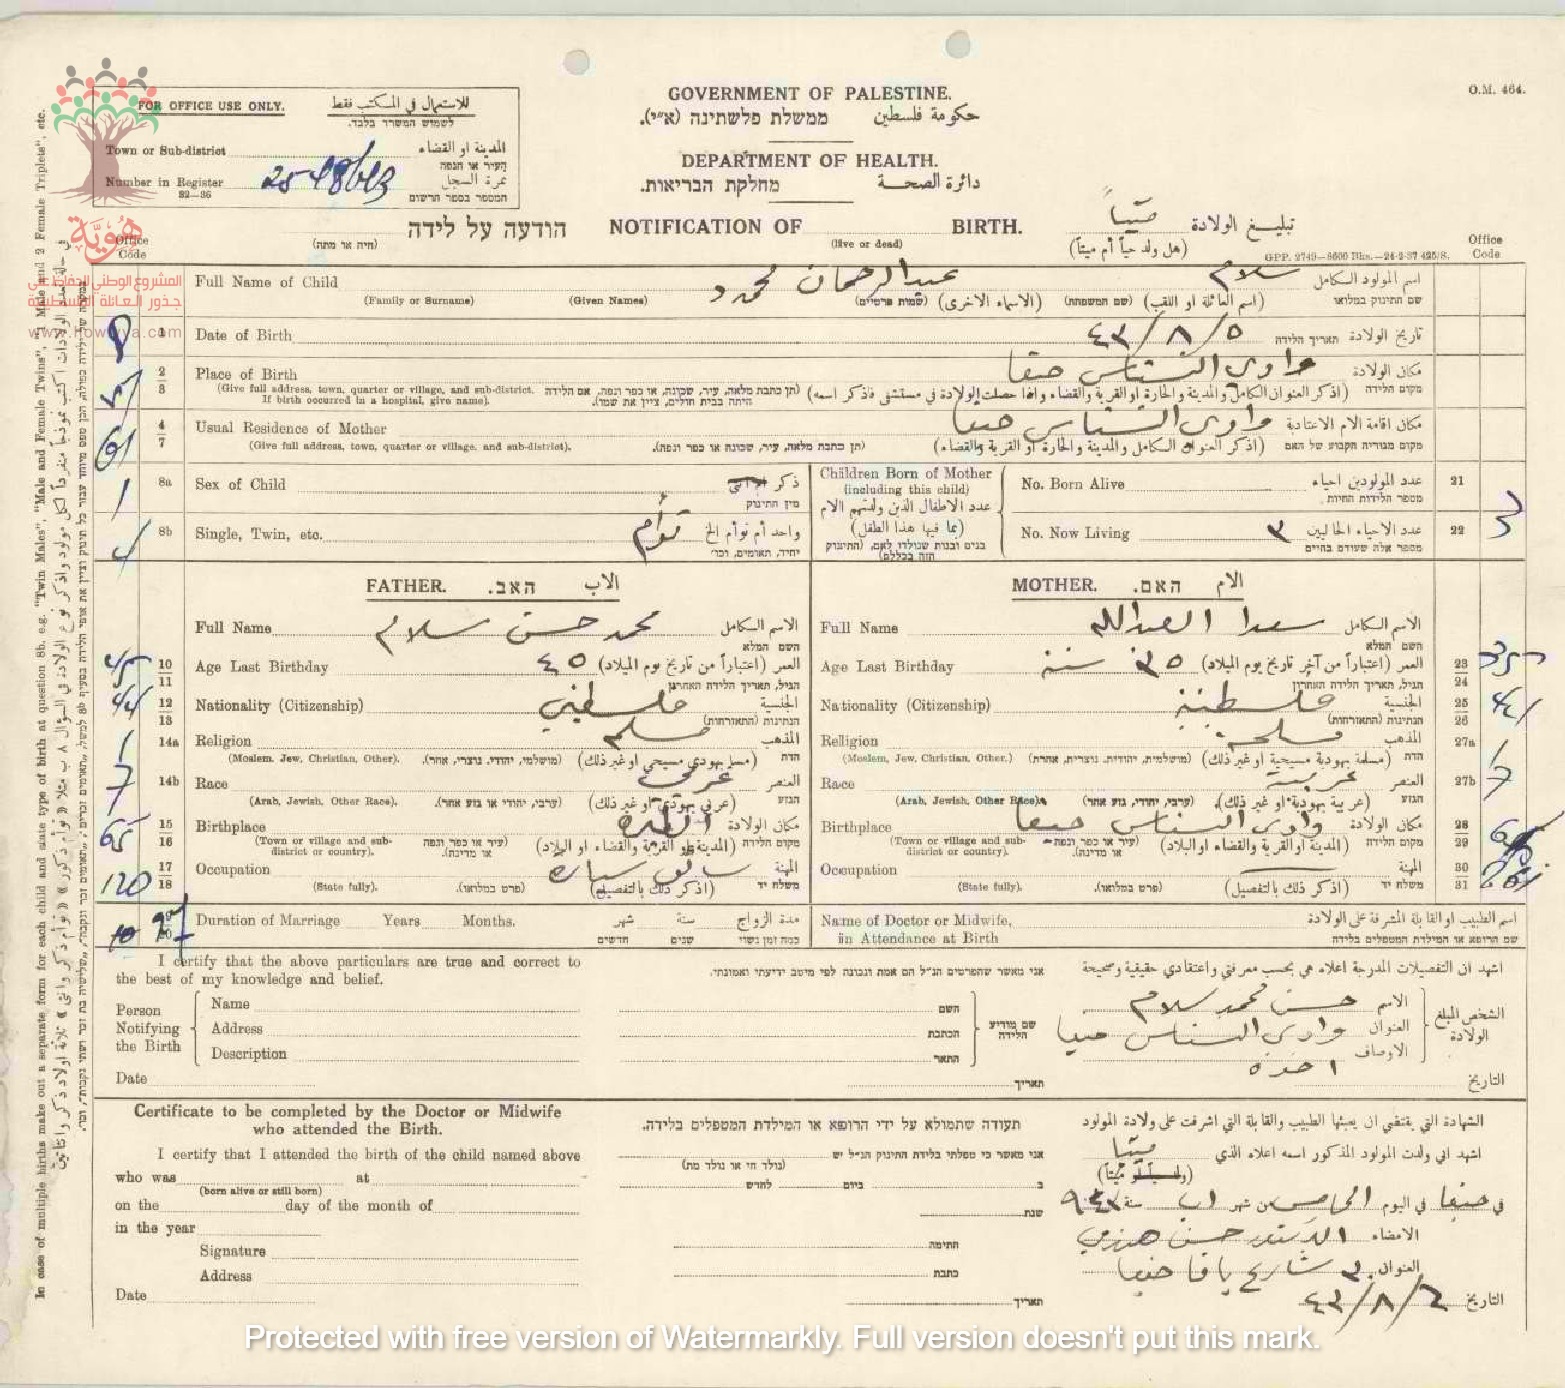 O.M. 464.
FOR OFFICE USE ONLY. للاستعمال في المكتب فقط
לשמוש המשרד בלבד.
Town or Sub-district المدينة او القضاء
העיר או הנפה
Number in Register نمرة السجل
32—36 המספר בספר הרשום
GOVERNMENT OF PALESTINE.
ממשלת פלשתינה (א״י). حكومة فلسطين
DEPARTMENT OF HEALTH.
מחלקת הבריאות. دائرة الصحة
הודעה על לידה NOTIFICATION OF BIRTH. ميتاً تبليغ الولادة
(חיה או מתה) (live or dead) (هل ولد حياً أم ميتاً)
Office Code
GPP. 2749—8600 Bks.—24-2-37 425/S.
Office Code
هوية
المشروع الوطني للحفاظ على
جذور العائلة الفلسطينية
www.howiyya.com
Full Name of Child محمود عبدالرحمان سلام اسم المولود الكامل
(Family or Surname) (Given Names) (שמות פרטיים) (الاسماء الاخرى) (שם המשפחה) (اسم العائلة او اللقب) שם התינוק במלואו
1 Date of Birth ٥/٨/٤٣ תאריך הלידה تاريخ الولادة
2 3 Place of Birth وادي النسناس حيفا مكان الولادة
(Give full address, town, quarter or village, and sub-district. If birth occurred in a hospital, give name). (תן כתבת מלאה, עיר, שכונה, או כפר ונפה, אם הלידה היתה בבית חולים, ציין את שמו). (اذكر العنوان الكامل والمدينة والحارة او القرية والقضاء واذا حصلت الولادة في مستشفى فاذكر اسمه) מקום הלידה
4 7 Usual Residence of Mother وادي النسناس حيفا مكان اقامة الام الاعتيادية
(Give full address, town, quarter or village, and sub-district). (תן כתבת מלאה, עיר, שכונה או כפר ונפה). (اذكر العنوان الكامل والمدينة والحارة او القرية والقضاء) מקום מגוריה הקבוע של האם
8a Sex of Child ذكر
מין התינוק
8b Single, Twin, etc. توأم واحد أم توأم الخ
יחיד, תאומים, וכו׳
Children Born of Mother
(including this child)
عدد الاطفال الذين ولدتهم الام
(بما فيها هذا الطفل)
בנים ובנות שנולדו לאם, (התינוק הזה בכללם)
No. Born Alive عدد المولودين احياء 21
מספר הלידות החיות
No. Now Living ٣ عدد الاحياء الحاليين 22
מספר אלה שעודם בחיים
FATHER. האב. الاب
Full Name محمد حسن سلام الاسم الكامل
השם המלא
10 11 Age Last Birthday ٤٥ العمر (اعتباراً من تاريخ يوم الميلاد)
הגיל, תאריך הלידה האחרון
12 13 Nationality (Citizenship) فلسطيني الجنسية
הנתינות (האזרחות)
14a Religion مسلم المذهب
(Moslem, Jew, Christian, Other). (מושלמי, יהודי, נוצרי, אחר). (مسلم يهودي مسيحي او غير ذلك) הדת
14b Race عربي العنصر
(Arab, Jewish, Other Race). (ערבי, יהודי או גזע אחר). (عربي يهودي او غير ذلك) הגזע
15 16 Birthplace الطيرة مكان الولادة
(Town or village and sub-district or country). (עיר או כפר ונפה או מדינה). (المدينة او القرية والقضاء او البلاد) מקום הלידה
17 18 Occupation سائق سيارة المهنة
(State fully). (פרט במלואו). (اذكر ذلك بالتفصيل) משלח יד
Duration of Marriage Years Months. شهر سنة مدة الزواج
חדשים שנים כמה זמן נשוי
MOTHER. האם. الام
Full Name سعدا العبدالله الاسم الكامل
השם המלא
Age Last Birthday ٣٥ سنة العمر (اعتباراً من آخر تاريخ يوم الميلاد) 23 24
הגיל, תאריך הלידה האחרון
Nationality (Citizenship) فلسطينية الجنسية 25 26
הנתינות (האזרחות)
Religion مسلمة المذهب 27a
(Moslem, Jew, Christian, Other.) (מושלמית, יהודית, נוצרית, אחרת) (مسلمة يهودية مسيحية او غير ذلك) הדת
Race عربية العنصر 27b
(Arab, Jewish, Other Race). (ערבי, יהודי, גזע אחר) (عربية يهودية او غير ذلك). הגזע
Birthplace وادي النسناس حيفا مكان الولادة 28 29
(Town or village and sub-district or country). (עיר או כפר ונפה או מדינה). (المدينة او القرية والقضاء او البلاد) מקום הלידה
Occupation المهنة 30 31
(State fully). (פרט במלואו). (اذكر ذلك بالتفصيل) משלח יד
Name of Doctor or Midwife, اسم الطبيب او القابلة المشرفة على الولادة
in Attendance at Birth שם הרופא או המילדת המטפלים בלידה
I certify that the above particulars are true and correct to
the best of my knowledge and belief.
אני מאשר שהפרטים הנ״ל הם אמת ונכונה לפי מיטב ידיעתי ואמונתי.
اشهد ان التفصيلات المدرجة اعلاه هي بحسب معرفتي واعتقادي حقيقية وصحيحة
Person Notifying the Birth
Name השם حسن محمد سلام الاسم
Address הכתבת وادي النسناس حيفا العنوان
Description התאר الاوصاف
שם מודיע הלידה الشخص المبلغ الولادة
Date תאריך التاريخ
Certificate to be completed by the Doctor or Midwife
who attended the Birth.
תעודה שתמולא על ידי הרופא או המילדת המטפלים בלידה.
الشهادة التي يقتضي ان يعبئها الطبيب والقابلة التي اشرفت على ولادة المولود
I certify that I attended the birth of the child named above
who was at
(born alive or still born)
on the day of the month of
in the year
Signature
Address
Date
אני מאשר כי טפלתי בלידת התינוק הנ״ל יש
(נולד חי או נולד מת)
ב ביום לחדש
שנת
חתימה
כתבת
תאריך
اشهد اني ولدت المولود المذكور اسمه اعلاه الذي ميتا
في حيفا في اليوم الخامس من شهر اب سنة ٩٤٣
الامضاء الدكتور حسن
العنوان ٣ شارع يافا حيفا
التاريخ ٦/٨/٤٣
In case of multiple births make out a separate form for each child and state type of birth at question 8b. e.g. "Twin Males", "Male and Female Twins", "1 Male and 2 Female Triplets", etc.
Protected with free version of Watermarkly. Full version doesn't put this mark.